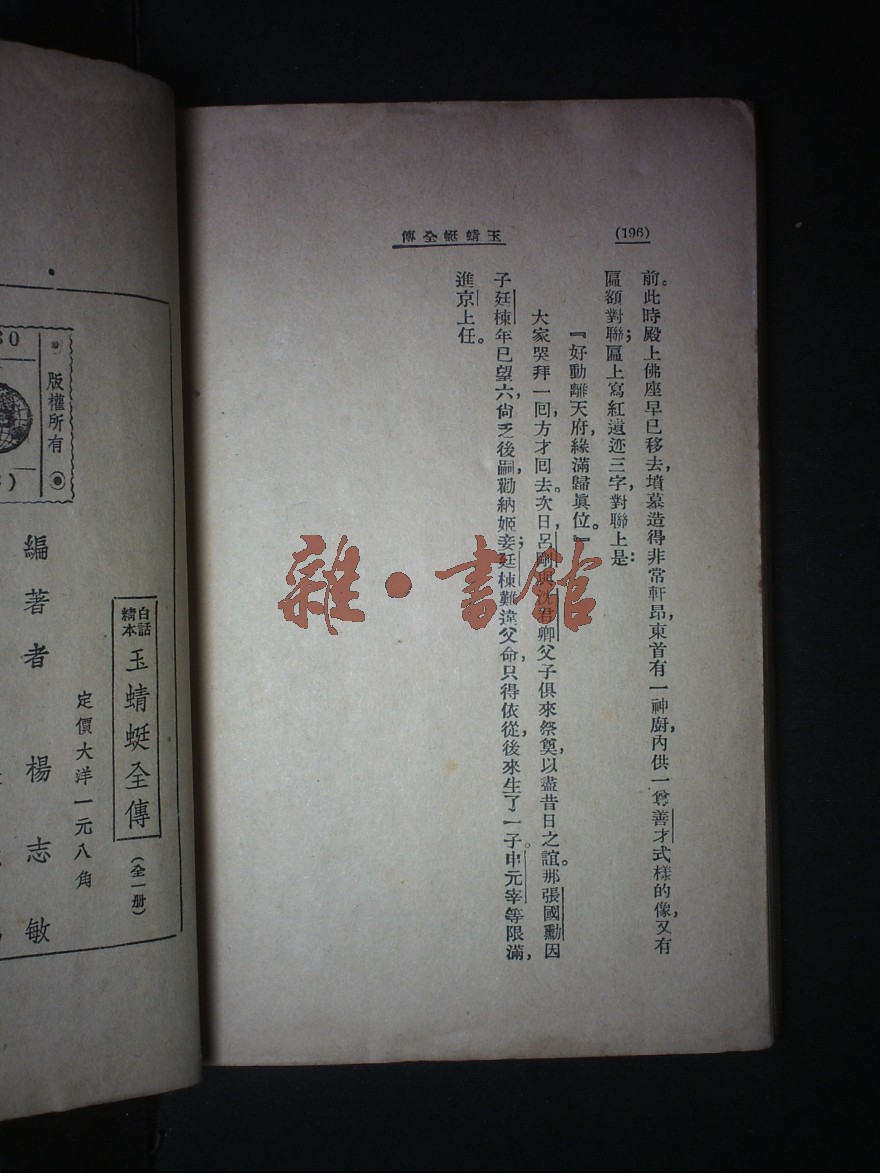 (196)
玉蜻蜓全傳
前。此時殿上佛座早已移去,墳墓造得非常軒昂,東首有一神廚,內供一尊善才式樣的像,又有
匾額對聯;匾上寫紅遺迹三字,對聯上是:
『好動離天府,緣滿歸眞位。』
大家哭拜一回,方才回去。次日,呂剛與沈君卿父子俱來祭奠,以盡昔日之誼。那張國勳因
子廷棟年已望六,尙乏後嗣,勸納姬妾;廷棟難違父命,只得依從,後來生了一子。申元宰等限滿,
進京上任。
雜·書館
版權所有
白話
繡本
玉蜻蜓全傳
(全一册)
定價大洋一元八角
編著者 楊志敏